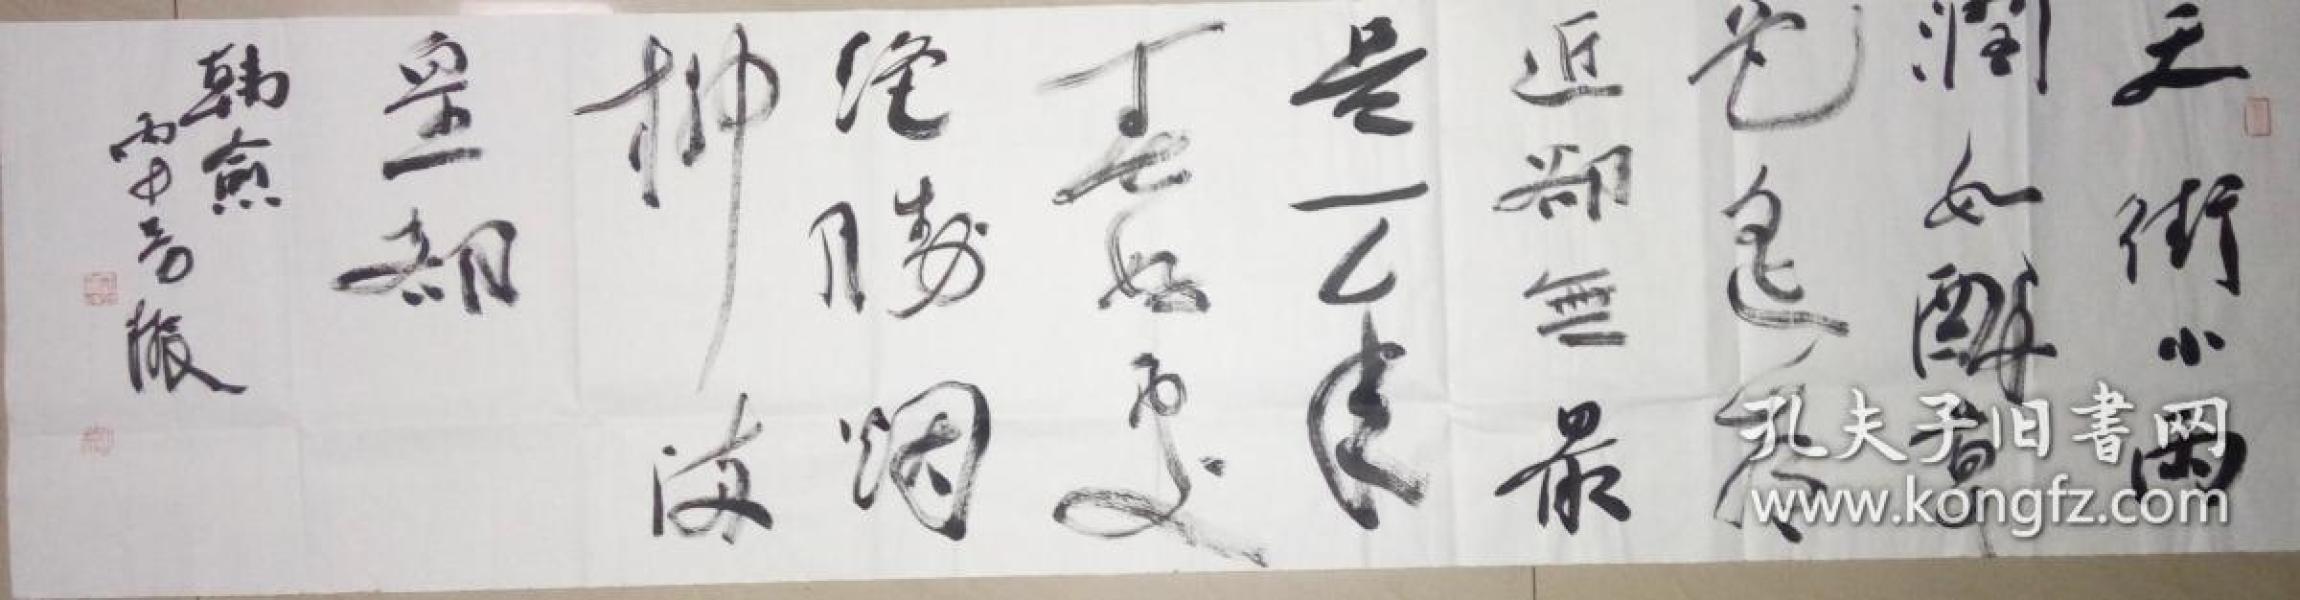 天街小雨
潤如酥草
色遥看
近卻無最
是一
絕勝烟
柳满
皇都
韓愈
丙申 振
孔夫子旧書网
www.kongfz.com